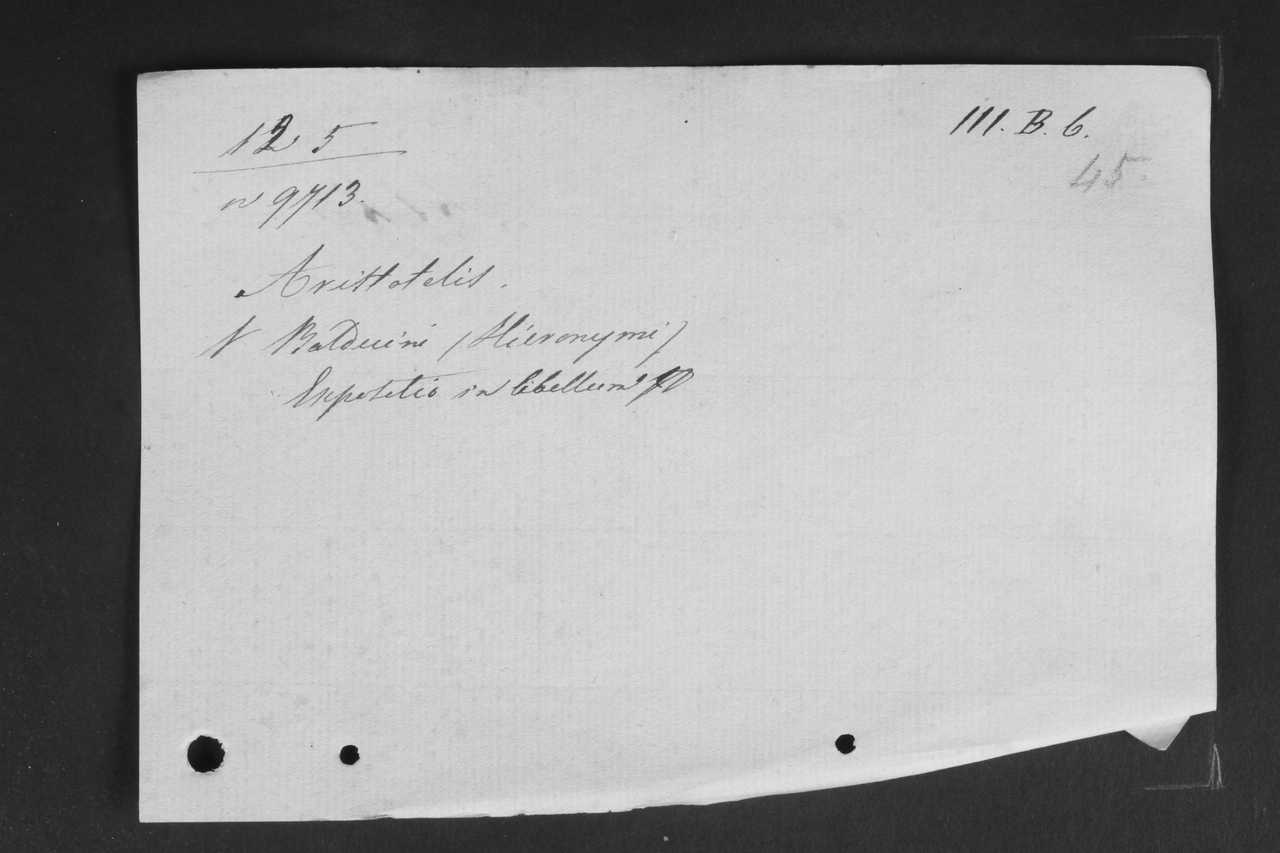 125
III. B. 6.
45
n 9713.
Aristotelis.
V Balduini (Hieronymi)
Expositio in libellum